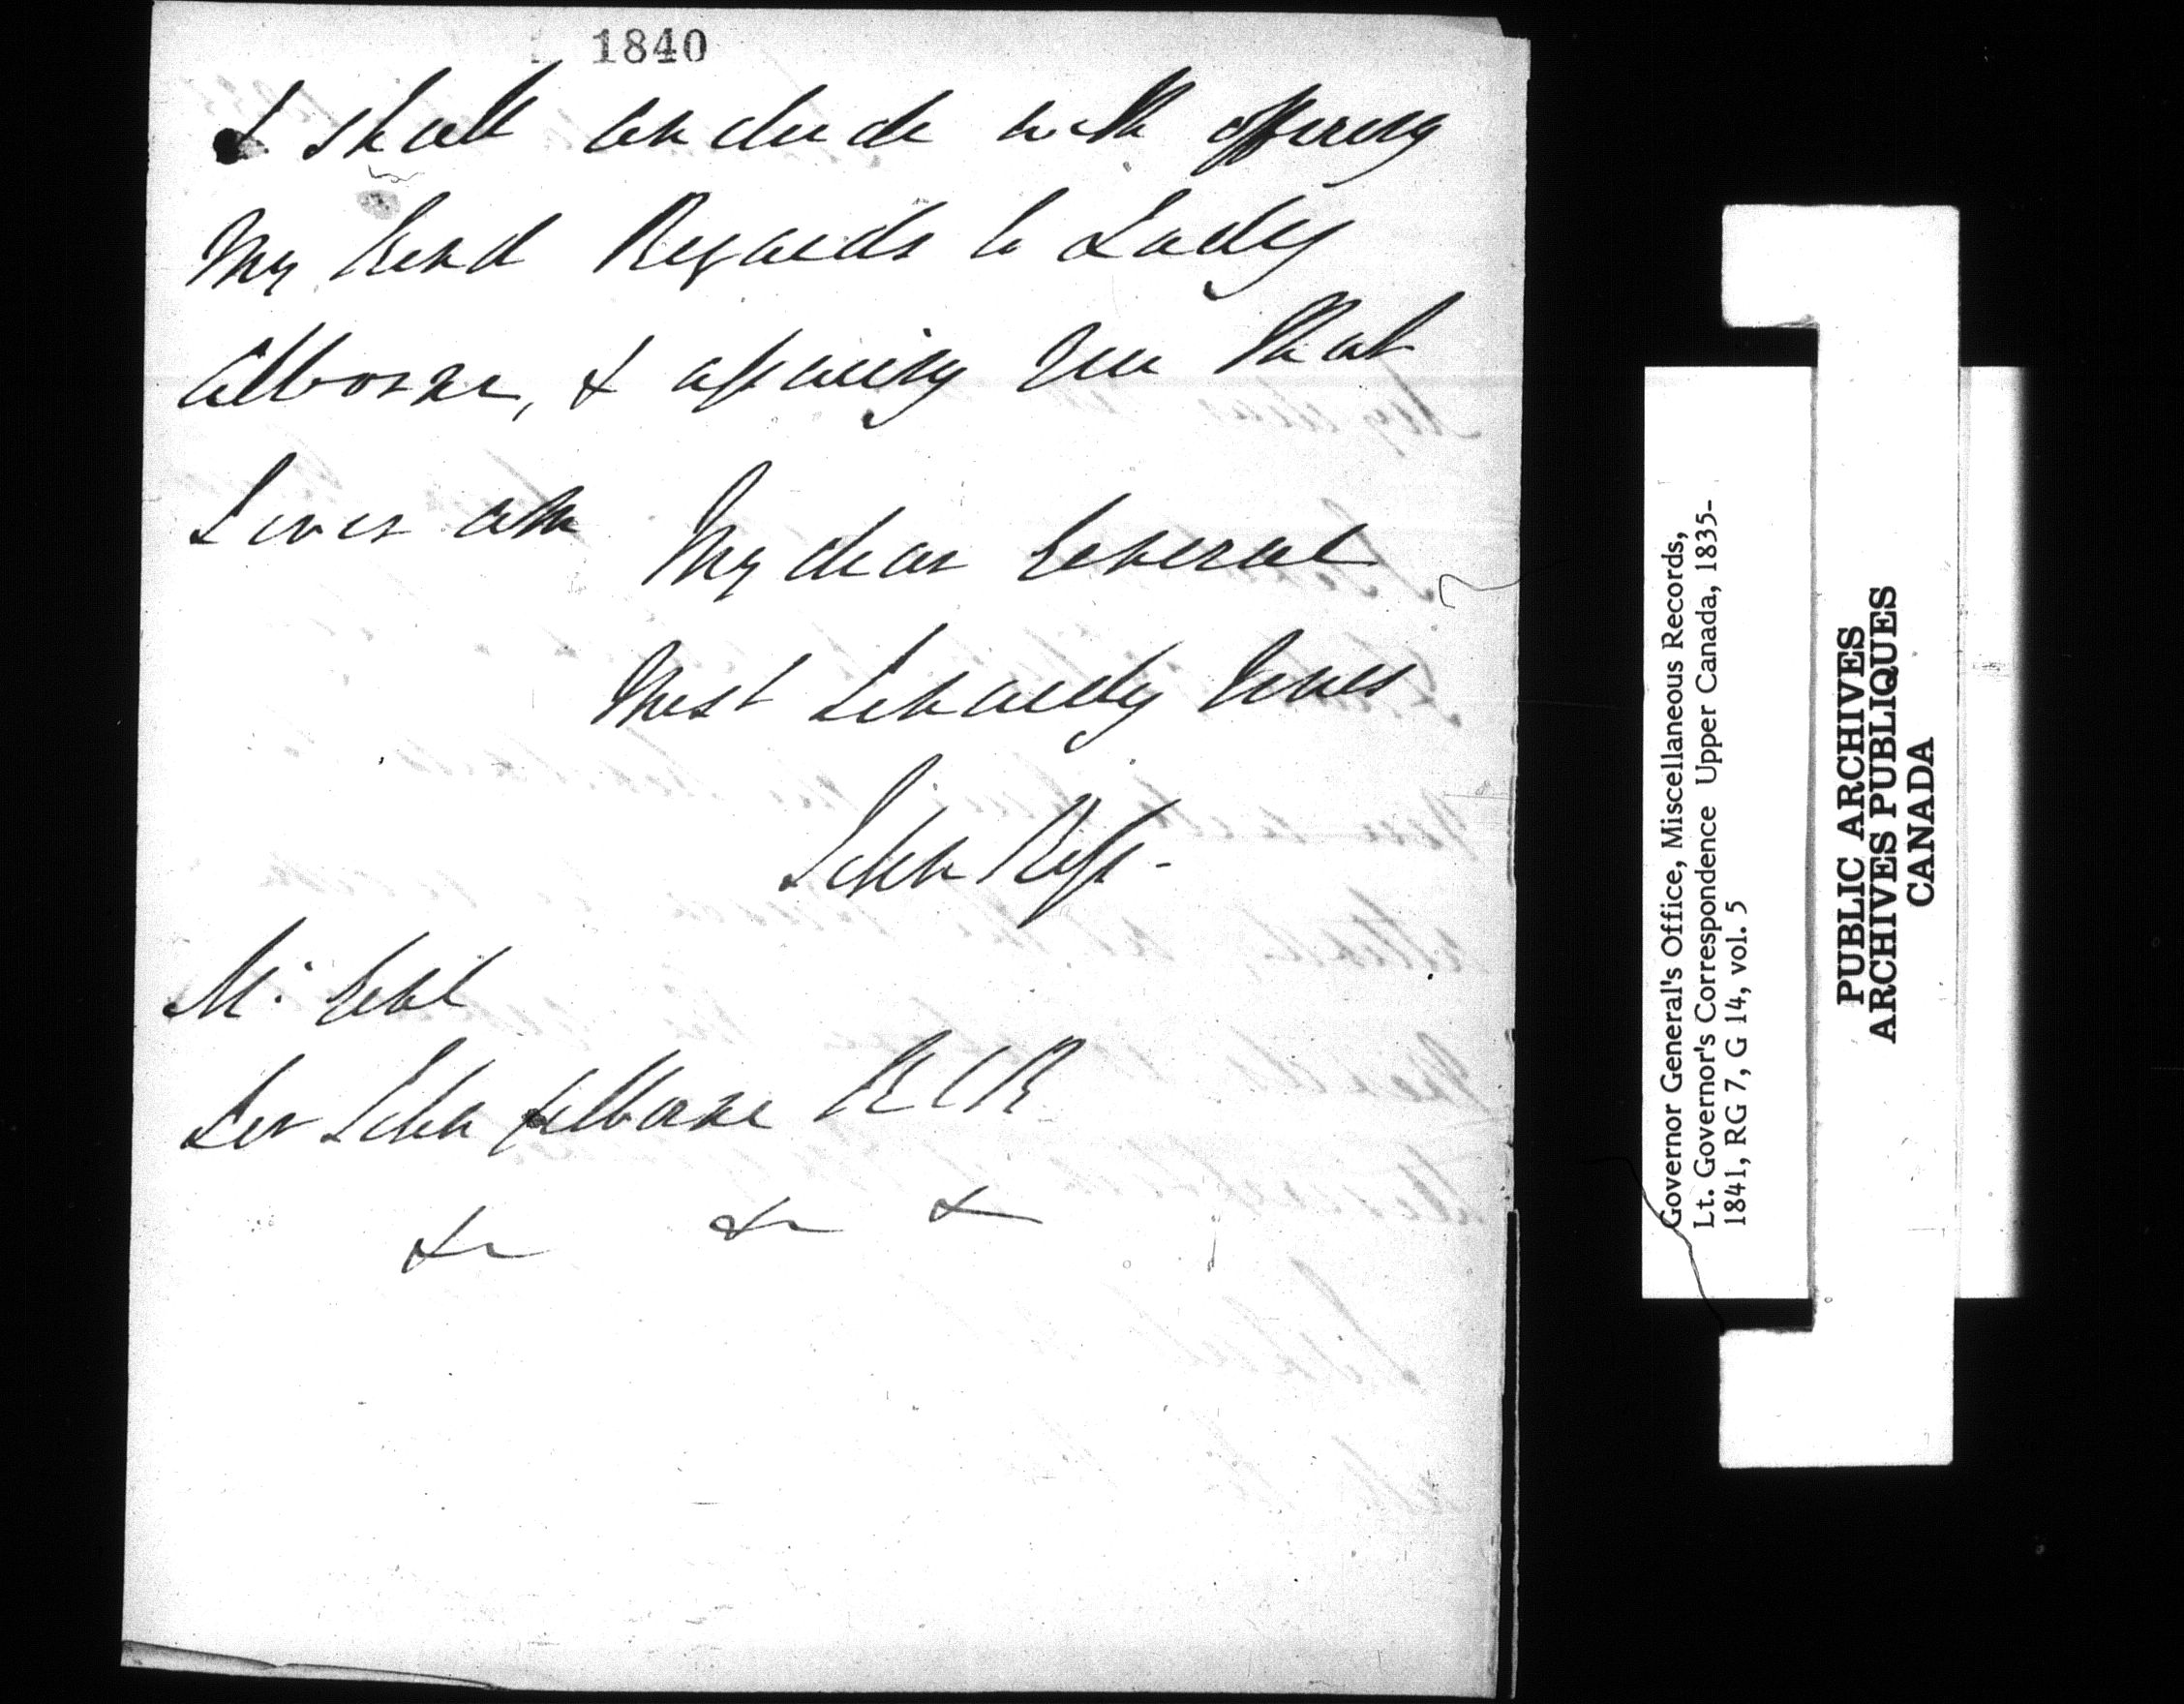 1840
I shall conclude with offering
My kind Regards to Lady
Colborne, & assuring you that
I ever am My dear General
Most Sincerely Yours
John Ross-
M. Genl
Sir John Colborne KCB
&c &c &c
Governor General's Office, Miscellaneous Records,
Lt. Governor's Correspondence Upper Canada, 1835-
1841, RG 7, G 14, vol. 5
PUBLIC ARCHIVES
ARCHIVES PUBLIQUES
CANADA